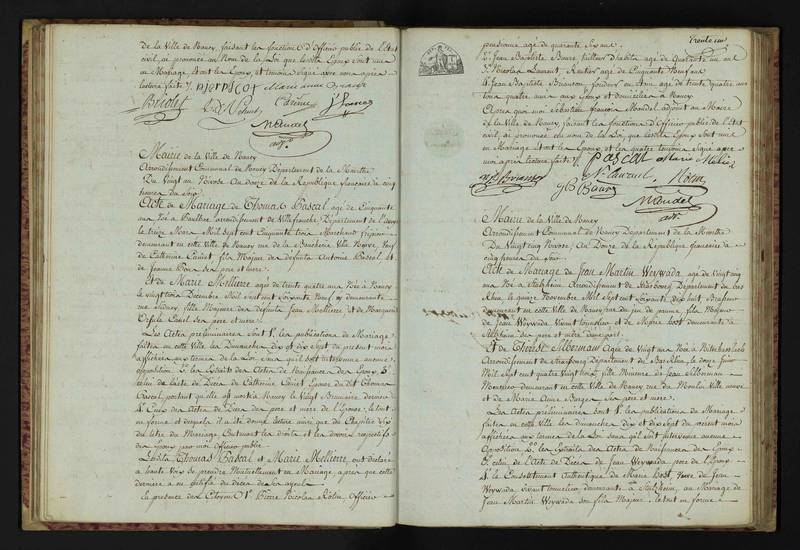 de la Ville de Nancy, faisant les fonctions d'Officier public de l'Etat
civil, ai prononcé au Nom de la Loi que lesdits Epoux sont unis
en Mariage et ont les Epoux, et témoins signé avec nous après
lecture faite /.
Marie anne
Briolet
Mandel
adj.
Mairie de la Ville de Nancy
Arrondissement Communal de Nancy Département de la Meurthe
Du Vingt un Nivose An douze de la République française à cinq
heures du soir
Acte de Mariage de Thomas Pascal agé de Cinquante
ans Né à arrondissement de Villefranche, Département de
le treize Mars Mil sept cent Cinquante trois Marchand fripier
demeurant en cette Ville de Nancy rue de la Boucherie Ville Neuve, Veuf
de Catherine fils Majeur des défunts Antoine Pascal et
de Jeanne ses père et mere.
Et de Marie Mellierre agée de trente quatre ans Née à Nancy
le vingt trois Décembre Mil sept cent soixante Neuf y demeurante
rue fille Majeure des défunts Jean Mellierre et de Marguerite
ses pere et mere.
Les Actes préliminaires sont 1° les publications de Mariage
faites en cette Ville les Dimanches dix et dix sept du présent mois
affichées aux termes de la Loi sans qu'il soit intervenu aucune
opposition 2° les Extraits des Actes de Naissances des Epoux 3°
celui de l'acte de Décès de Catherine Epouse du dit Thomas
Pascal portant qu'elle est morte à Nancy le Vingt Brumaire dernier
4° Ceux des Actes de Décès des pere et mere de l'Epouse, le tout
en forme, et desquels il a été donné lecture ainsi que du Chapitre six
du titre du Mariage Contenant les droits et les devoirs respectifs
des Epoux par moi officier public
Lesdits Thomas Pascal et Marie Mellierre, ont déclaré
à haute Voix se prendre Mutuellement en Mariage, après que cette
dernière a justifié du décès de ses ayeuls
En présence des Citoyens 1° Pierre Nicolas Officier
pensionné agé de quarante six ans
2° Jean Baptiste tailleur d'habits agé de Quarante un ans
3° Nicolas Laurent, Rentier agé de Cinquante Neuf ans
4° Jean Baptiste agé de trente quatre ans
tous quatre amis aux Epoux et domiciliés à Nancy
Après quoi moi Sébastien françois Mandel adjoint au Maire
de la Ville de Nancy faisant les fonctions d'Officier public de l'Etat
civil, ai prononcé au nom de la Loi, que lesdits Epoux sont unis
en Mariage et ont les Epoux, et les quatre temoins Signé avec
moi après lecture faite /.
Pascal
N. Laurent
Mandel
adj.
Mairie de la Ville de Nancy
Arrondissement Communal de Nancy Département de la Meurthe
Du Vingt cinq Nivose, An Douze de la République française à
cinq heures du soir.
Acte de Mariage de Jean Martin Weywada agé de Vingt cinq
ans Né à Arrondissement de Strasbourg Département du bas
Rhin, le quinze Novembre Mil Sept cent Soixante dix huit Brasseur
demeurant en cette Ville de Nancy rue du jeu de paume fils Majeur
de Jean Weywada Vivant tonnelier et de Marie demeurante à
ses père et mère
Et de Thérèse Silbermann Agée de Vingt ans Née à
Arrondissement de Strasbourg Département du Bas Rhin, le douze Juin
Mil Sept cent quatre Vingt trois, fille Mineure de Jean Silbermann
demeurant en cette Ville de Nancy rue du Moulin Ville neuve
et de Marie Anne Berger ses pere et mere.
Les Actes préliminaires sont 1° les publications de Mariage
faites en cette Ville les dimanches dix et dix sept du présent mois
affichées aux termes de la Loi sans qu'il soit intervenu aucune
Opposition 2° les Extraits des Actes de Naissances des Epoux
3° celui de l'Acte de Décès de Jean Weywada pere de l'Epoux
4° le Consentement Authentique de Marie Veuve de Jean
Weywada vivant tonnelier demeurante à au Mariage de
Jean Martin Weywada son fils Majeur, le tout en forme &